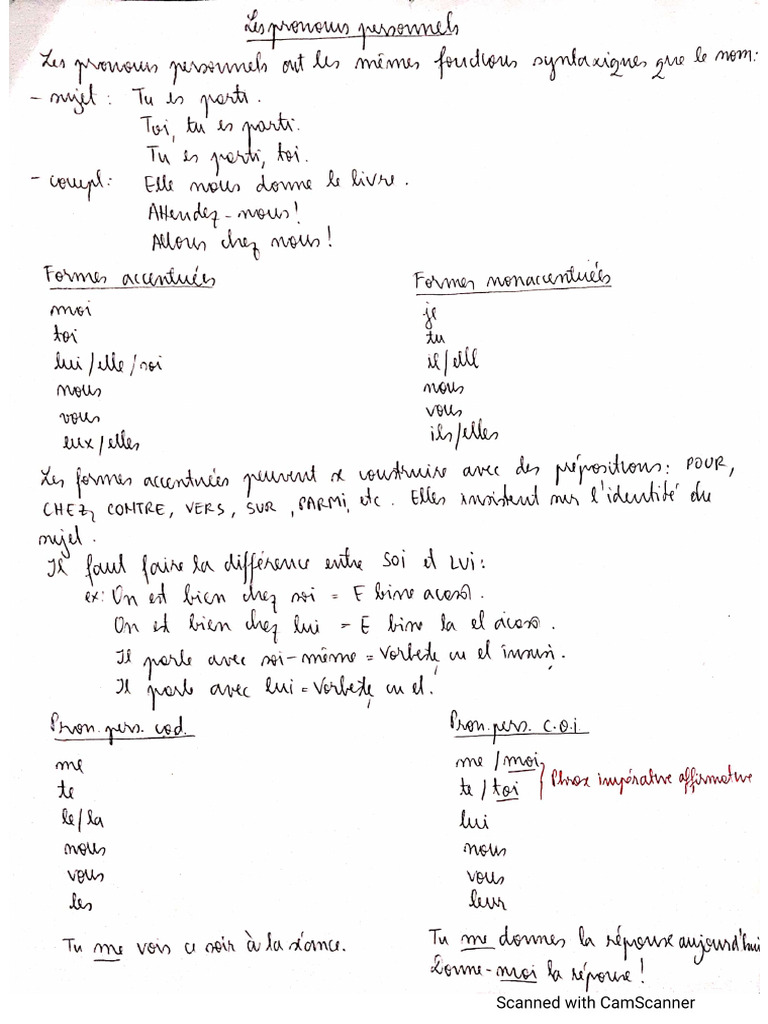 Les pronoms personnels
Les pronoms personnels ont les mêmes fonctions syntaxiques que le nom:
- sujet: Tu es parti.
Toi, tu es parti.
Tu es parti, toi.
- compl: Elle nous donne le livre.
Attendez-nous!
Allons chez nous!
Formes accentuées
Formes nonaccentuées
moi
je
toi
tu
lui/elle/soi
il/elle
nous
nous
vous
vous
eux/elles
ils/elles
Les formes accentuées peuvent se construire avec des prépositions: POUR,
CHEZ, CONTRE, VERS, SUR, PARMI, etc. Elles insistent sur l'identité du
sujet.
Il faut faire la différence entre SOI et LUI:
ex: On est bien chez soi = E bine acasă.
On est bien chez lui = E bine la el acasă.
Il parle avec soi-même = Vorbește cu el însuși.
Il parle avec lui = Vorbește cu el.
Pron. pers. cod.
Pron. pers. c.o.i.
me
me / moi
te
te / toi
Phrase impérative affirmative
le/la
lui
nous
nous
vous
vous
les
leur
Tu me vois ce soir à la séance.
Tu me donnes la réponse aujourd'hui
Donne-moi la réponse!
Scanned with CamScanner